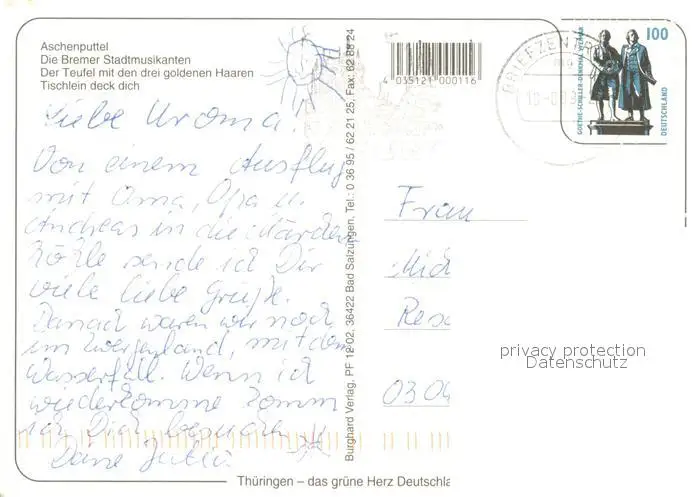 Aschenputtel
Die Bremer Stadtmusikanten
Der Teufel mit den drei goldenen Haaren
Tischlein deck dich
Liebe Uroma.
Von einem Ausflug
mit Oma, Opa u.
Andreas in die Märchen
höhle sende ich Dir
viele liebe Grüße.
Danach waren wir noch
im Zwergenland, mit dem
Wasserfall. Wenn ich
wiederkomme komm
ich Dich besuchen
Deine
Burghard Verlag, PF 12 02, 36422 Bad Salzungen, Tel.: 0 36 95 / 62 21 25, Fax: 62 88 24
4 035121 000116
BRIEFZENTR
100
GOETHE-SCHILLER-DENKMAL WEIMAR
DEUTSCHLAND
Frau
03 04
privacy protection
Datenschutz
Thüringen – das grüne Herz Deutschla